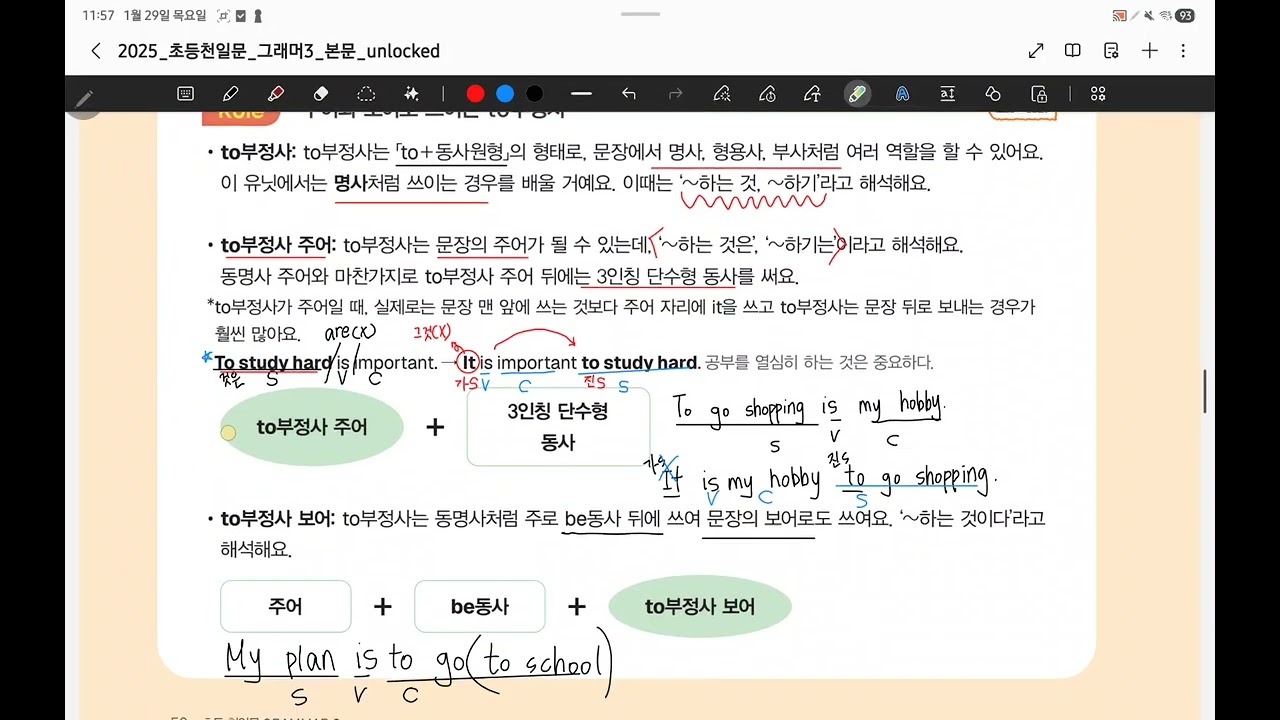 11:57 1월 29일 목요일
93
2025_초등천일문_그래머3_본문_unlocked
Rule 주어와 보어로 쓰이는 to부정사
• to부정사: to부정사는 「to+동사원형」의 형태로, 문장에서 명사, 형용사, 부사처럼 여러 역할을 할 수 있어요.
이 유닛에서는 명사처럼 쓰이는 경우를 배울 거예요. 이때는 '~하는 것, ~하기'라고 해석해요.
• to부정사 주어: to부정사는 문장의 주어가 될 수 있는데, '~하는 것은', '~하기는'이라고 해석해요.
동명사 주어와 마찬가지로 to부정사 주어 뒤에는 3인칭 단수형 동사를 써요.
*to부정사가 주어일 때, 실제로는 문장 맨 앞에 쓰는 것보다 주어 자리에 it을 쓰고 to부정사는 문장 뒤로 보내는 경우가
훨씬 많아요. are(X) 그것(X)
*To study hard is important. → It is important to study hard. 공부를 열심히 하는 것은 중요하다.
것은 S V C 가S V C 진S S
to부정사 주어 + 3인칭 단수형
동사
To go shopping is my hobby.
S V C
가S 진S
It is my hobby to go shopping.
V C S
• to부정사 보어: to부정사는 동명사처럼 주로 be동사 뒤에 쓰여 문장의 보어로도 쓰여요. '~하는 것이다'라고
해석해요.
주어 + be동사 + to부정사 보어
My plan is to go (to school)
S V C